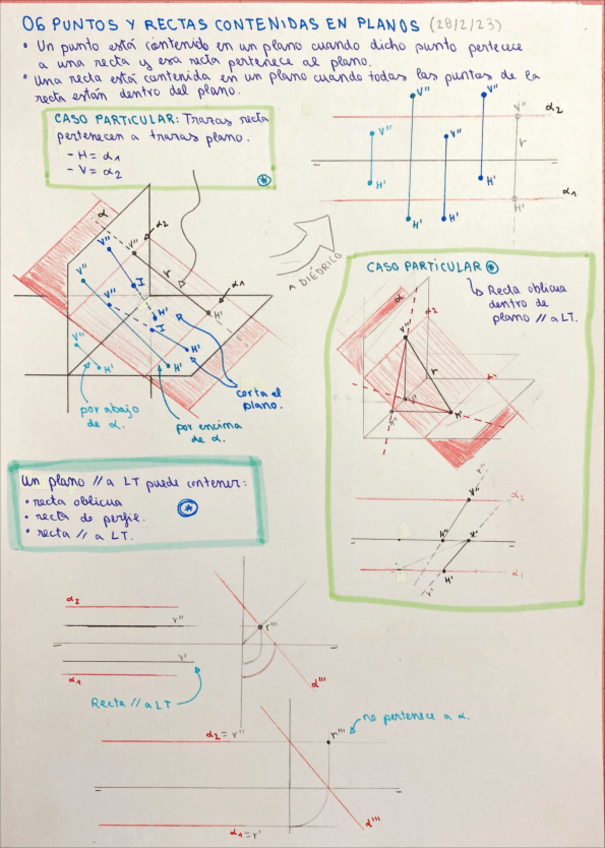 06 PUNTOS Y RECTAS CONTENIDAS EN PLANOS (28/2/23)
• Un punto está contenido en un plano cuando dicho punto pertenece
a una recta y esa recta pertenece al plano.
• Una recta está contenida en un plano cuando todas las puntas de la
recta están dentro del plano.
CASO PARTICULAR: Trazas recta
pertenecen a trazas plano.
- H = α1
- V = α2
V''
V''
V''
V''
α2
r
H'
H'
H'
H'
H'
α1
A DIÉDRICO
α
α2
V''
V''
V''
V''
V''
r
α1
I
I
H'
H'
H'
H'
H'
corta el
plano.
por abajo
de α.
por encima
de α.
CASO PARTICULAR
Recta oblicua
dentro de
plano // a LT.
α
α2
V''
r
α1
V'
H''
H'
r''
V''
α2
H''
V'
H'
α1
r'
Un plano // a LT puede contener:
• recta oblicua
• recta de perfil.
• recta // a LT.
α2
r''
r'
α1
r'''
α'''
Recta // a LT
α2 = r''
r'''
no pertenece a α.
α1 = r'
α'''